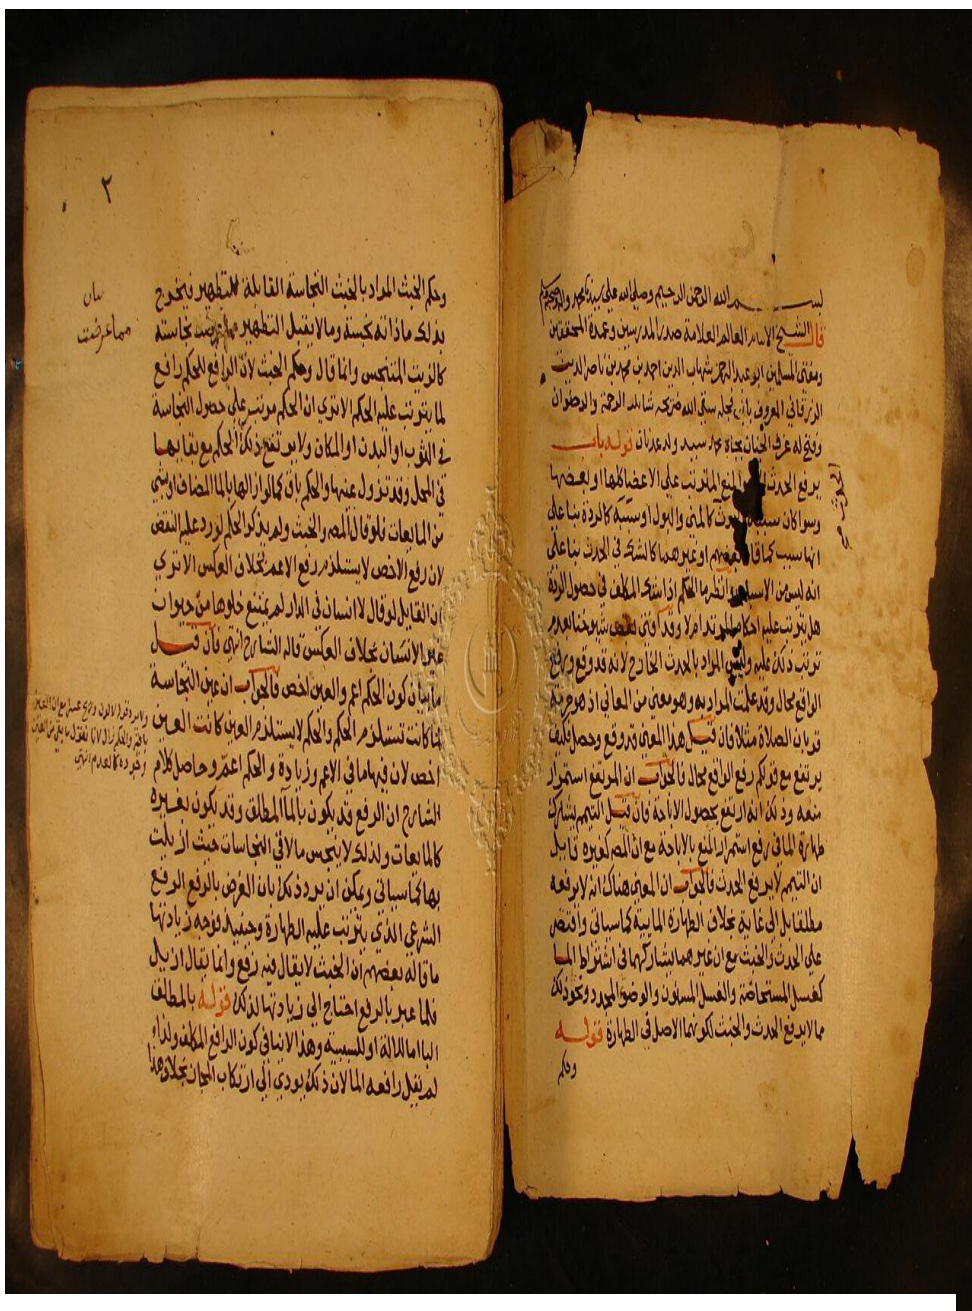 بســـم الله الرحمن الرحيم وصلى الله على سيدنا محمد واله وصحبه وسلم
قال الشيخ الامام العالم العلامة صدر المدرسين وعمدة المحققين
ومفتي المسلمين ابو عبد الله محمد شهاب الدين احمد بن محمد بن ناصر الدين
الزرقاني المعروف بابن فجلة سقى الله ضريحه شابيب الرحمة والرضوان
وفتح له غرف الجنان بجاه محمد سيد ولد عدنان قوله باب
يرفع الحدث المنع المترتب على الاعضا كلها او بعضها
وسوا كان سببه الحدث كالمنى والبول او سببه كالردة بنا على
انها سبب كما قال بعضهم او غيرهما كالشك في الحدث بنا على
انه ليس من الاسباب وانظر ما الحكم اذا شك المكلف في حصول الردة
هل يترتب عليه احكام المرتد ام لا وقد افتى بعض شيوخنا بعدم
ترتب ذلك عليه وليس المراد بالحدث الخارج لانه قد وقع ورفع
الواقع محال وقد علمت المراد به وهو معنى من المعاني اذ هو حرمة
قربان الصلاة مثلا فان قيل هذا المعنى قد وقع وحصل فكيف
يرتفع مع قولكم رفع الواقع محال فالجواب ان المرتفع استمرار
منعه وذلك انه ارتفع بحصول الاباحة فان قيل التيمم يشارك
طهارة الما في رفع استمرار المنع بالاباحة مع ان المص كغيره قايل
ان التيمم لا يرفع الحدث فالجواب ان المعنى هناك انه لا يرفعه
مطلقا بل الى غاية بخلاف الطهارة المايية كما سياتي واقتصر
على الحدث والخبث مع ان غيرهما يشاركهما في اشتراط الما
كغسل المستحاضة والغسل المسنون والوضو المجدد ونحو ذلك
مما لا يرفع الحدث والخبث لكونهما الاصل في الطهارة قوله
وحكم
الحدث صح
٢
وحكم الخبث المراد بالخبث النجاسة القابلة للتطهير فيخرج
بذلك ما ذاته نجسة وما لا يقبل التطهير مما عرضت نجاسته
كالزيت المتنجس وانما قال وحكم الخبث لان الرافع للحكم رافع
لما يترتب عليه الحكم الا ترى ان الحكم مرتب على حصول النجاسة
في الثوب او البدن او المكان ولا يرتفع ذلك الحكم مع بقايها
في المحل وقد تزول عينها والحكم باق كما لو ازالها بالما المضاف او بشي
من المايعات فلو قال المص والخبث ولم يذكر الحكم لورد عليه النقض
لان رفع الاخص لا يستلزم رفع الاعم بخلاف العكس الا ترى
ان القايل لو قال لا انسان في الدار لم يمتنع خلوها من حيوان
غير الانسان بخلاف العكس قاله الشارح انتهى فان قيل
ما بيان كون الحكم اعم والعين اخص فالجواب ان عين النجاسة
لما كانت تستلزم الحكم والحكم لا يستلزم العين كانت العين
اخص لان فيها ما في الاعم وزيادة والحكم اعم وحاصل كلام
الشارح ان الرفع قد يكون بالما المطلق وقد يكون بغيره
كالمايعات ولذلك لا يتنجس ملاقي النجاسات حيث ازيلت
بها كما سياتي ويمكن ان يرد ذلك بان الغرض بالرفع الرفع
الشرعي الذي يترتب عليه الطهارة وحينيذ فوجه زيادتها
ما قاله بعضهم ان الخبث لا يقال فيه رفع وانما يقال ازيل
فلما عبر بالرفع احتاج الى زيادتها لذلك قوله بالمطلق
البا اما للالة او للسببية وهذا لا ينافي كون الرافع المكلف ولذا لو
لم يقل رافعه الما لان ذلك يودي الى ارتكاب المجاز بخلاف هذا
بيان
مما عرضت